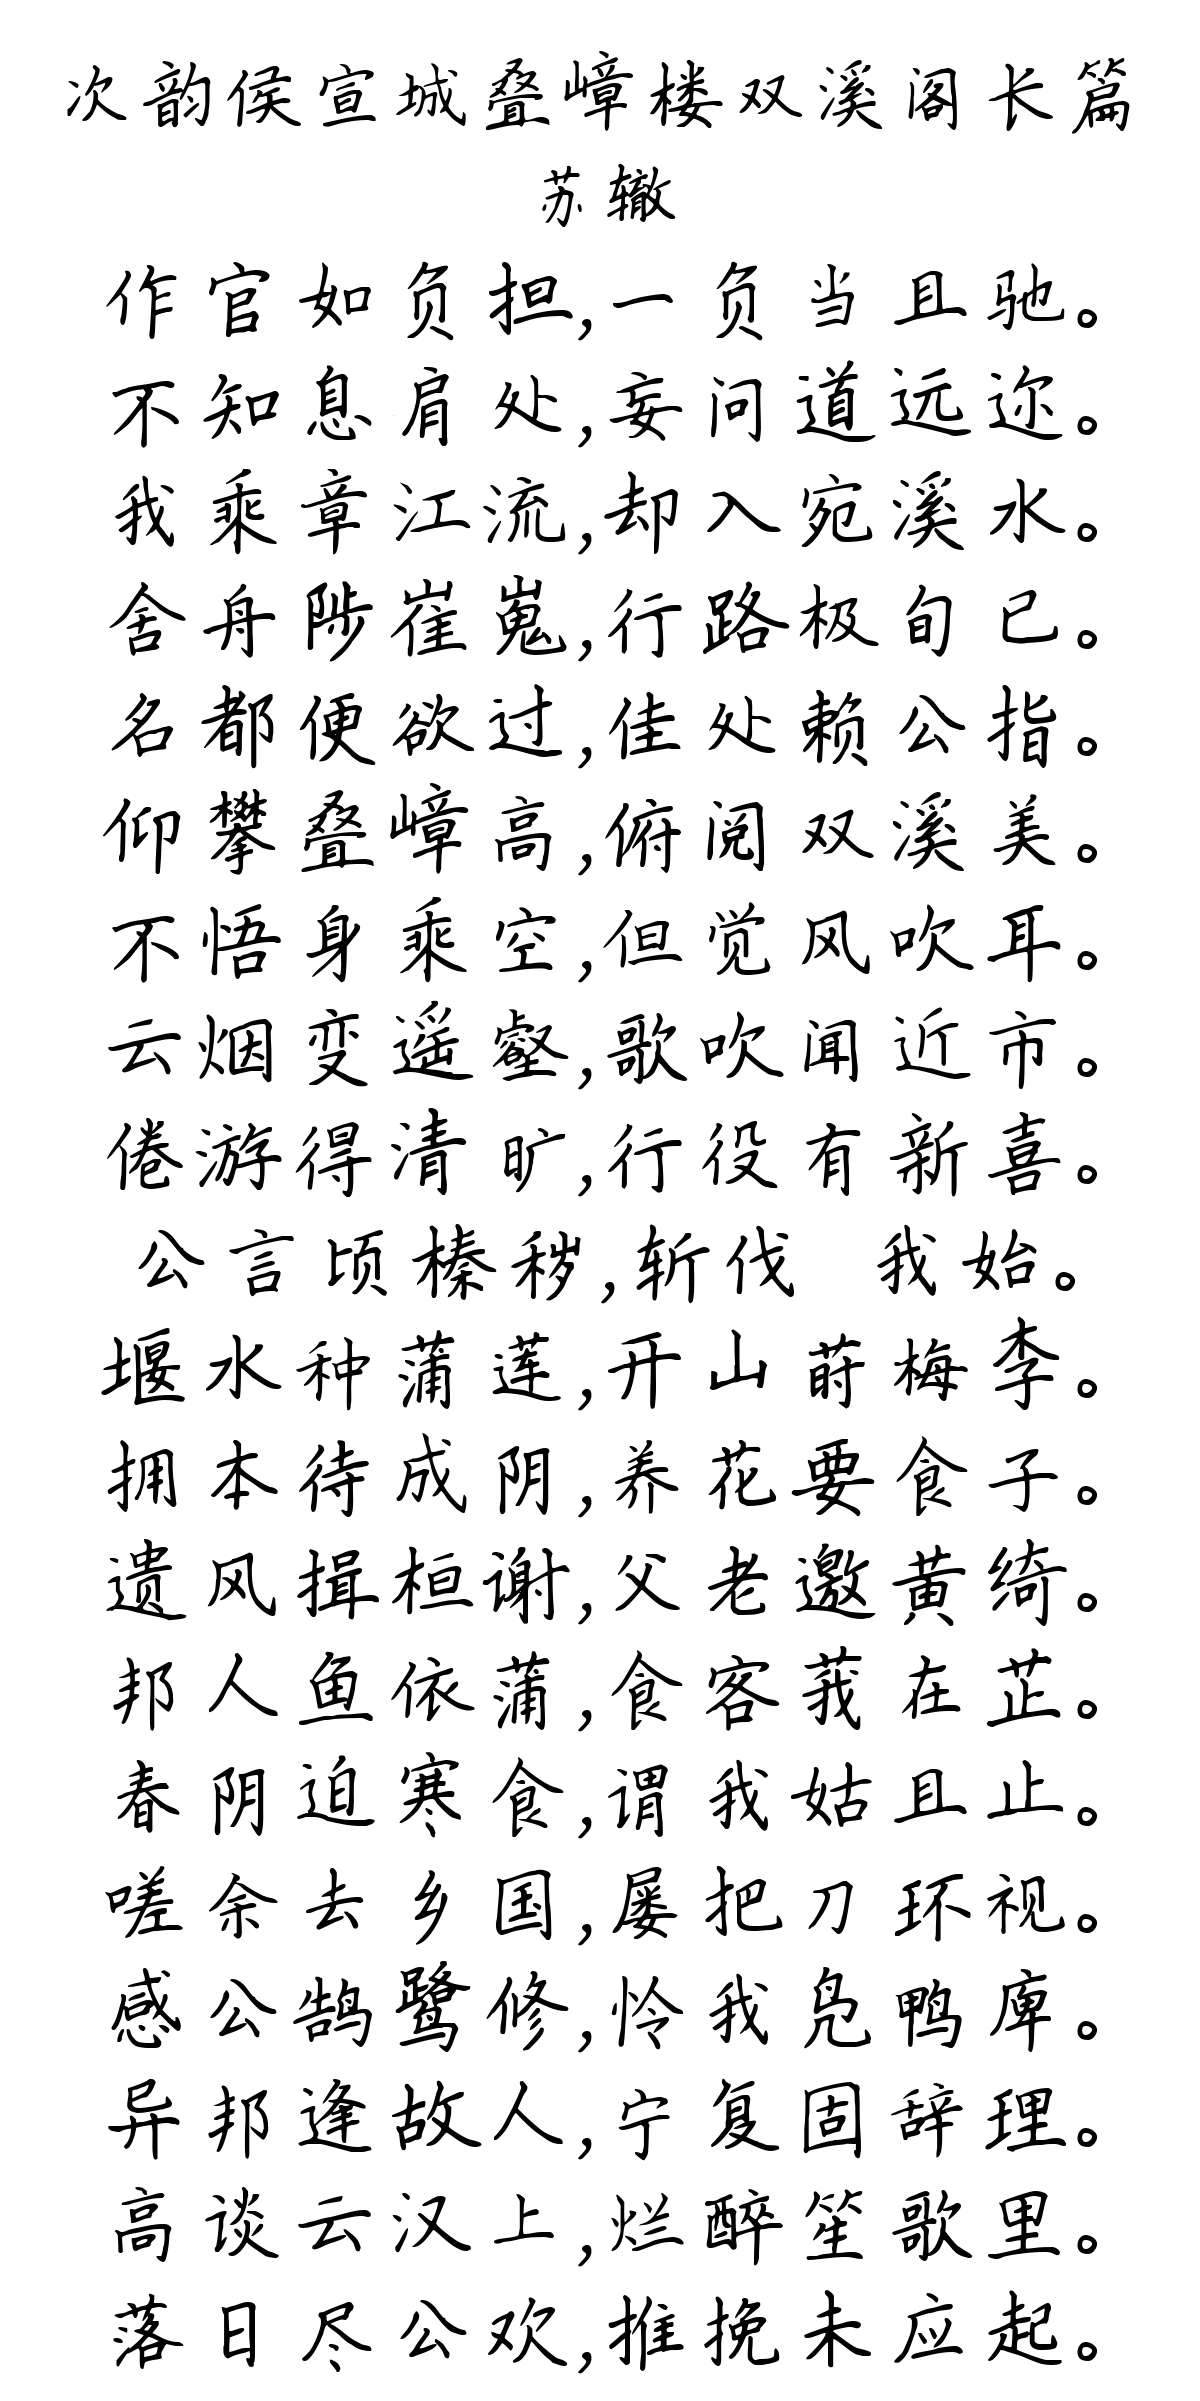 次韵侯宣城叠嶂楼双溪阁长篇
苏辙
作官如负担,一负当且驰。
不知息肩处,妄问道远迩。
我乘章江流,却入宛溪水。
舍舟陟崔嵬,行路极旬已。
名都便欲过,佳处赖公指。
仰攀叠嶂高,俯阅双溪美。
不悟身乘空,但觉风吹耳。
云烟变遥壑,歌吹闻近市。
倦游得清旷,行役有新喜。
公言顷榛秽,斩伐 我始。
堰水种蒲莲,开山莳梅李。
拥本待成阴,养花要食子。
遗风揖桓谢,父老邀黄绮。
邦人鱼依蒲,食客莪在芷。
春阴迫寒食,谓我姑且止。
嗟余去乡国,屡把刀环视。
感公鹄鹭修,怜我凫鸭庳。
异邦逢故人,宁复固辞理。
高谈云汉上,烂醉笙歌里。
落日尽公欢,推挽未应起。